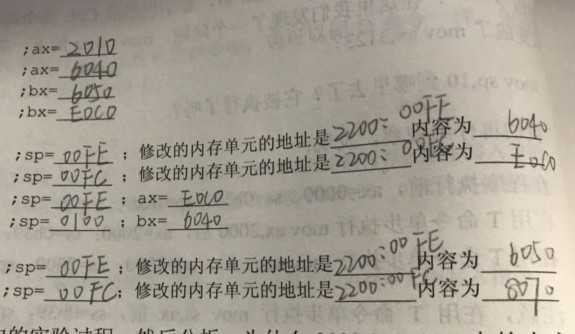 ;ax= 2010
;ax= 6040
;bx= 6050
;bx= E0C0
;sp= 00FE ; 修改的内存单元的地址是 2200:00FF 内容为 6040
;sp= 00FC ; 修改的内存单元的地址是 2200: 内容为 E0C0
;sp= 00FE ; ax= E0C0
;sp= 0100 ; bx= 6040
;sp= 00FE ; 修改的内存单元的地址是 2200:00FE 内容为 6050
;sp= 00FC ; 修改的内存单元的地址是 2200:00 内容为